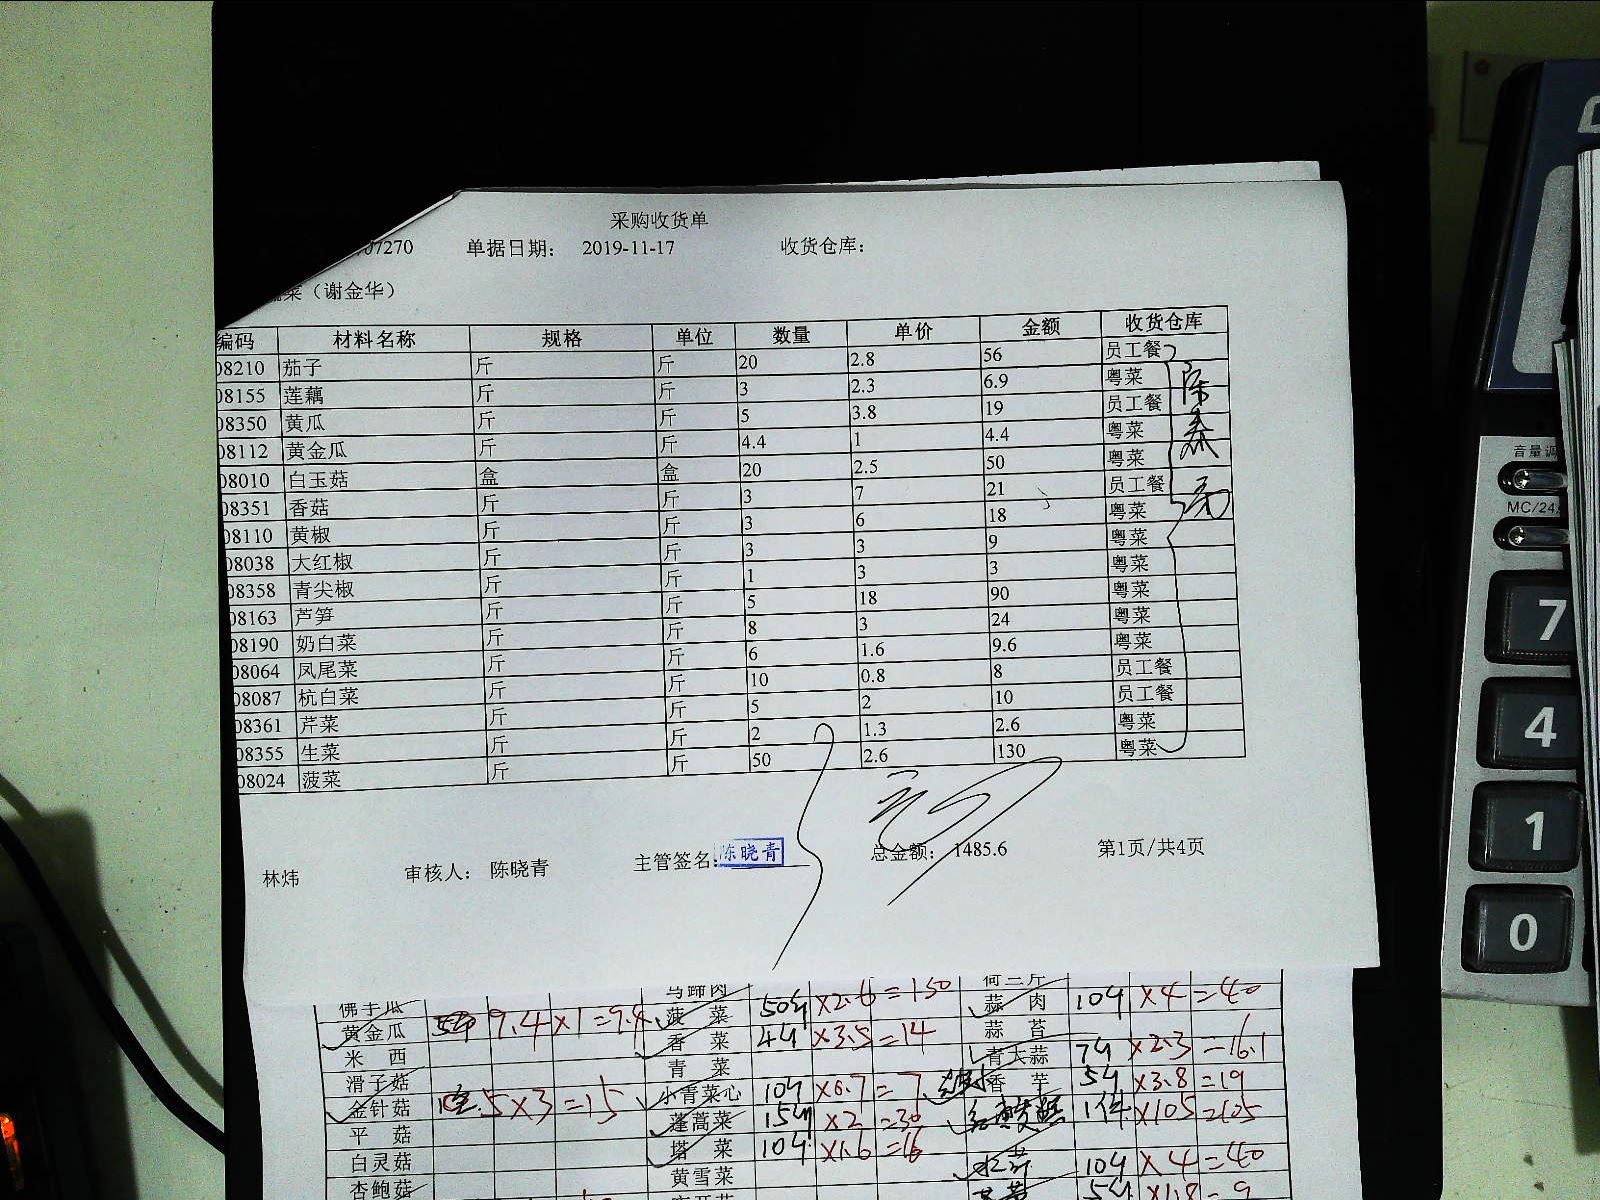 采购收货单
07270 单据日期： 2019-11-17 收货仓库：
菜（谢金华）
编码 材料名称 规格 单位 数量 单价 金额 收货仓库
08210 茄子 斤 斤 20 2.8 56 员工餐
08155 莲藕 斤 斤 3 2.3 6.9 粤菜
08350 黄瓜 斤 斤 5 3.8 19 员工餐
08112 黄金瓜 斤 斤 4.4 1 4.4 粤菜
08010 白玉菇 盒 盒 20 2.5 50 粤菜
08351 香菇 斤 斤 3 7 21 员工餐
08110 黄椒 斤 斤 3 6 18 粤菜
08038 大红椒 斤 斤 3 3 9 粤菜
08358 青尖椒 斤 斤 1 3 3 粤菜
08163 芦笋 斤 斤 5 18 90 粤菜
08190 奶白菜 斤 斤 8 3 24 粤菜
08064 凤尾菜 斤 斤 6 1.6 9.6 粤菜
08087 杭白菜 斤 斤 10 0.8 8 员工餐
08361 芹菜 斤 斤 5 2 10 员工餐
08355 生菜 斤 斤 2 1.3 2.6 粤菜
08024 菠菜 斤 斤 50 2.6 130 粤菜
林炜 审核人： 陈晓青 主管签名： 陈晓青 总金额： 1485.6 第1页/共4页
佛手瓜 马蹄肉 荷兰芹
黄金瓜 9.4×1=9.4 菠菜 50斤 ×2.6=130 蒜肉 10斤 ×4=40
米西 香菜 4斤 ×3.5=14 蒜苔
滑子菇 青菜 青大蒜 7斤 ×2.3=16.1
金针菇 5×3=15 小青菜心 10斤 ×0.7=7 香芋 5斤 ×3.8=19
平菇 蓬蒿菜 15斤 ×2=30 1件 ×105=105
白灵菇 塔菜 10斤 ×1.6=16 10斤 ×4=40
杏鲍菇 黄雪菜 5斤 ×1.8=9
音量调
MC/24
7
4
1
0